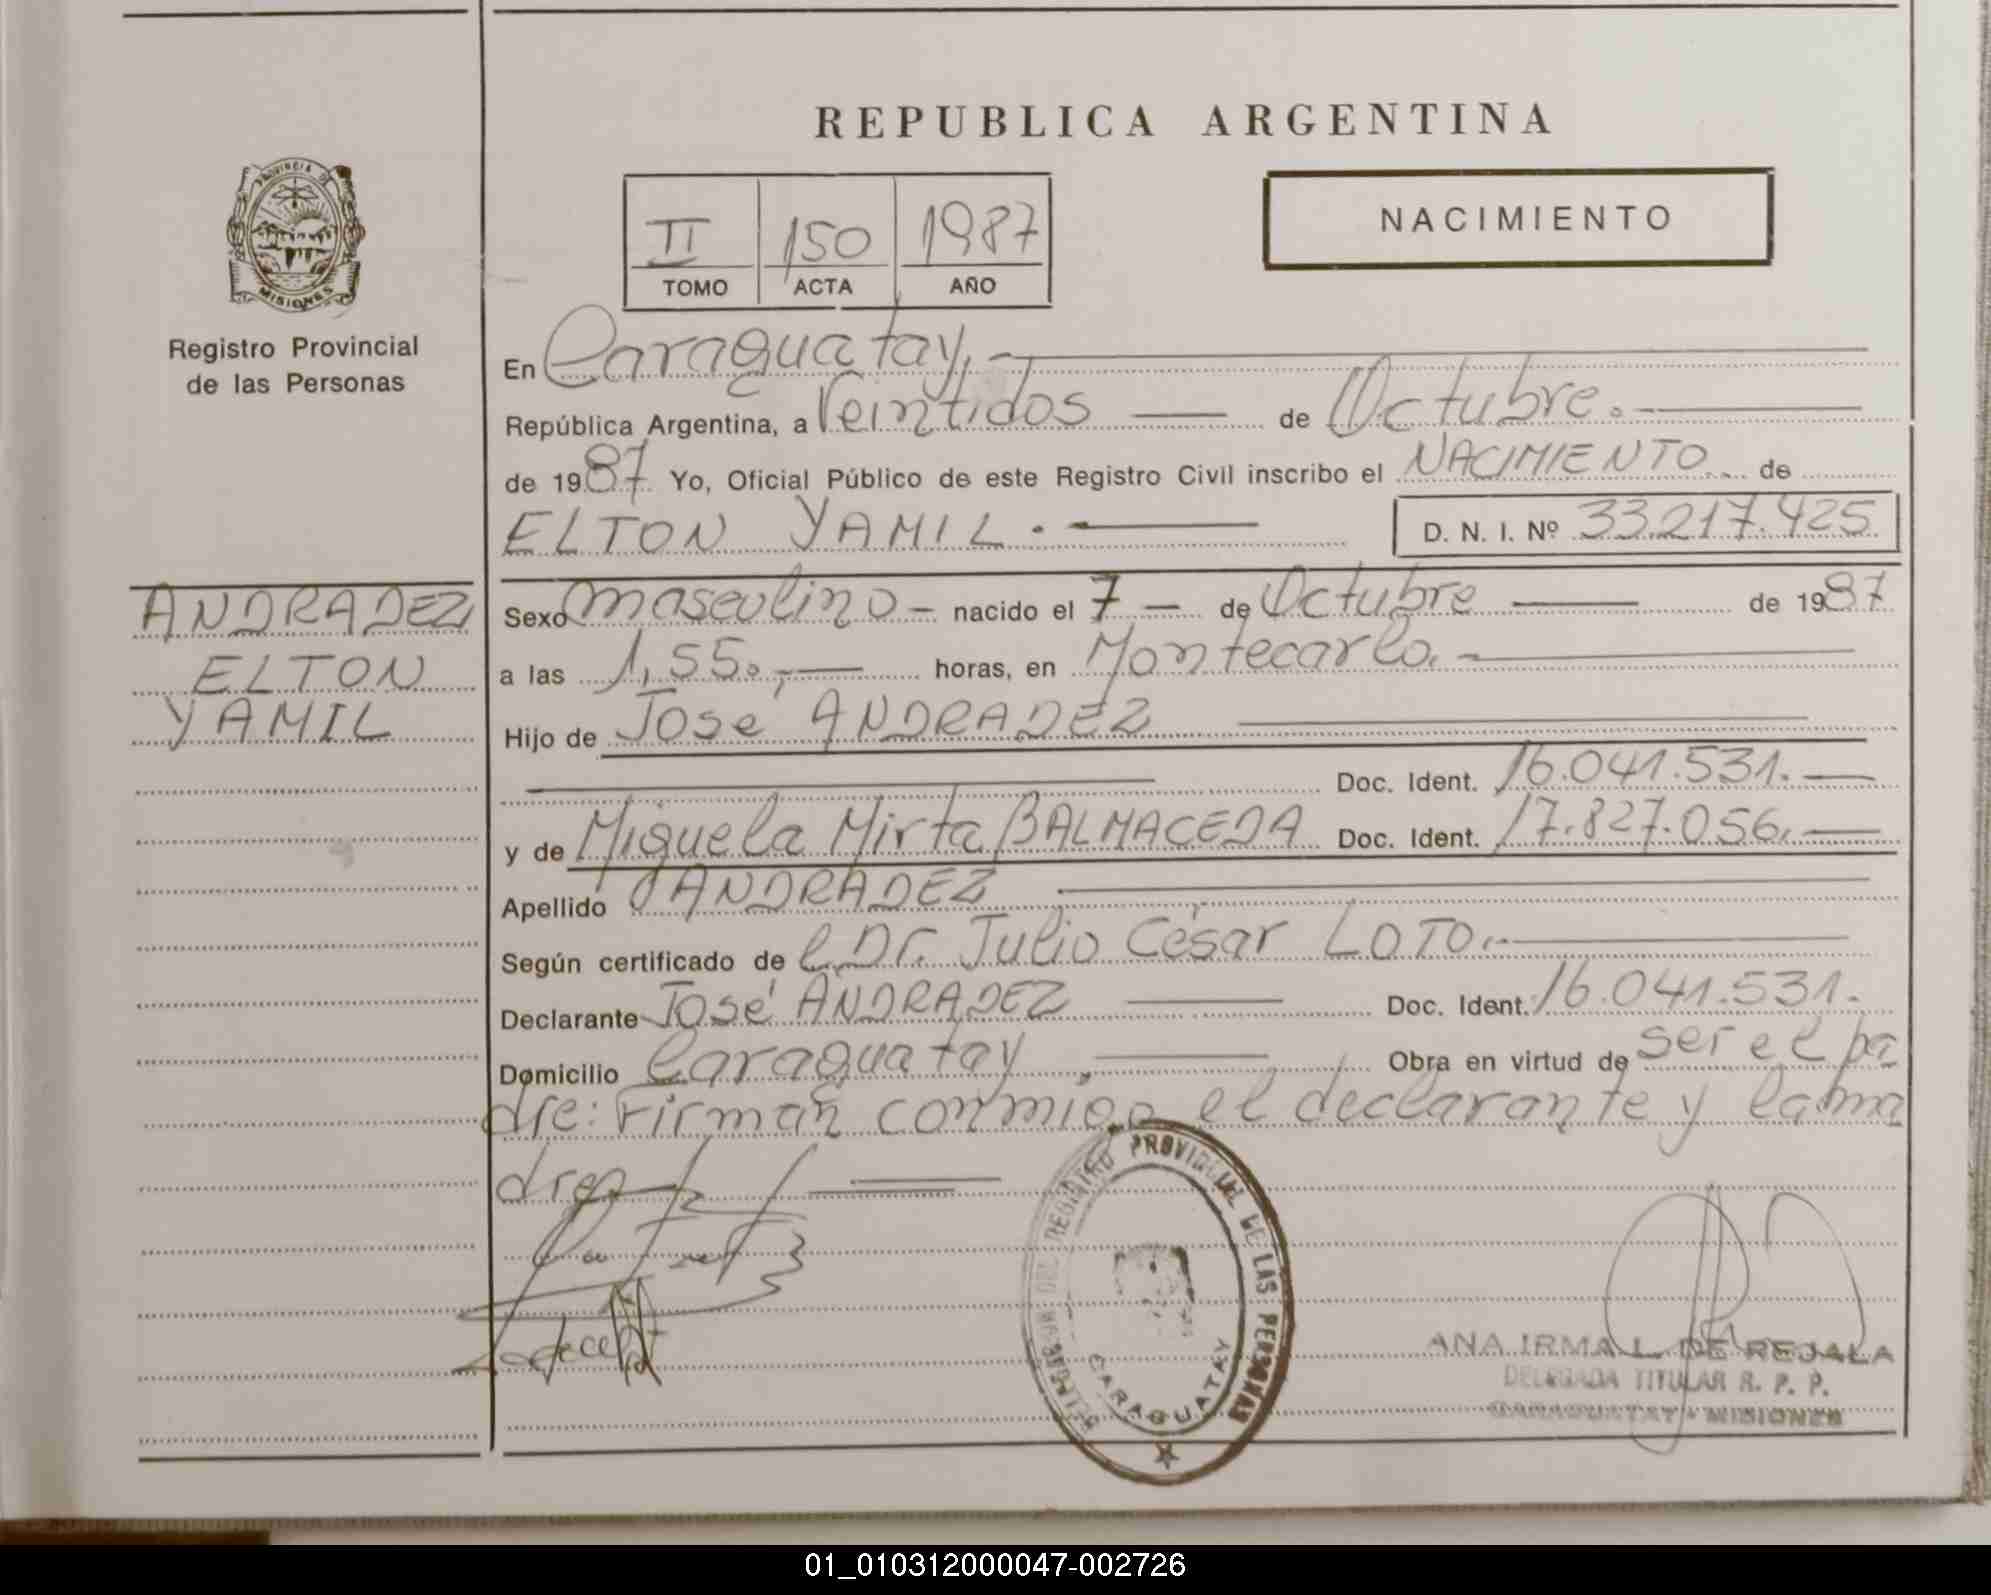 REPUBLICA ARGENTINA
PROVINCIA DE
MISIONES
Registro Provincial
de las Personas
II 150 1987
TOMO ACTA AÑO
NACIMIENTO
En Caraguatay,
República Argentina, a Veintidos de Octubre.
de 1987 Yo, Oficial Público de este Registro Civil inscribo el NACIMIENTO de
ELTON YAMIL. D. N. I. Nº 33.217.425
ANDRADEZ
ELTON
YAMIL
Sexo masculino nacido el 7 de Octubre de 1987
a las 1,55. horas, en Montecarlo.
Hijo de José ANDRADEZ
Doc. Ident. 16.041.531.
y de Miguela Mirta BALMACEDA Doc. Ident. 17.827.056.
Apellido ANDRADEZ
Según certificado de l Dr. Julio César LOTO.
Declarante José ANDRADEZ Doc. Ident. 16.041.531.
Domicilio Caraguatay, Obra en virtud de ser el pa
dre: Firman conmigo el declarante y la ma
dre
REGISTRO PROVINCIAL DE LAS PERSONAS
CARAGUATAY
ANA IRMA L. DE REJALA
DELEGADA TITULAR R. P. P.
CARAGUATAY - MISIONES
01_010312000047-002726